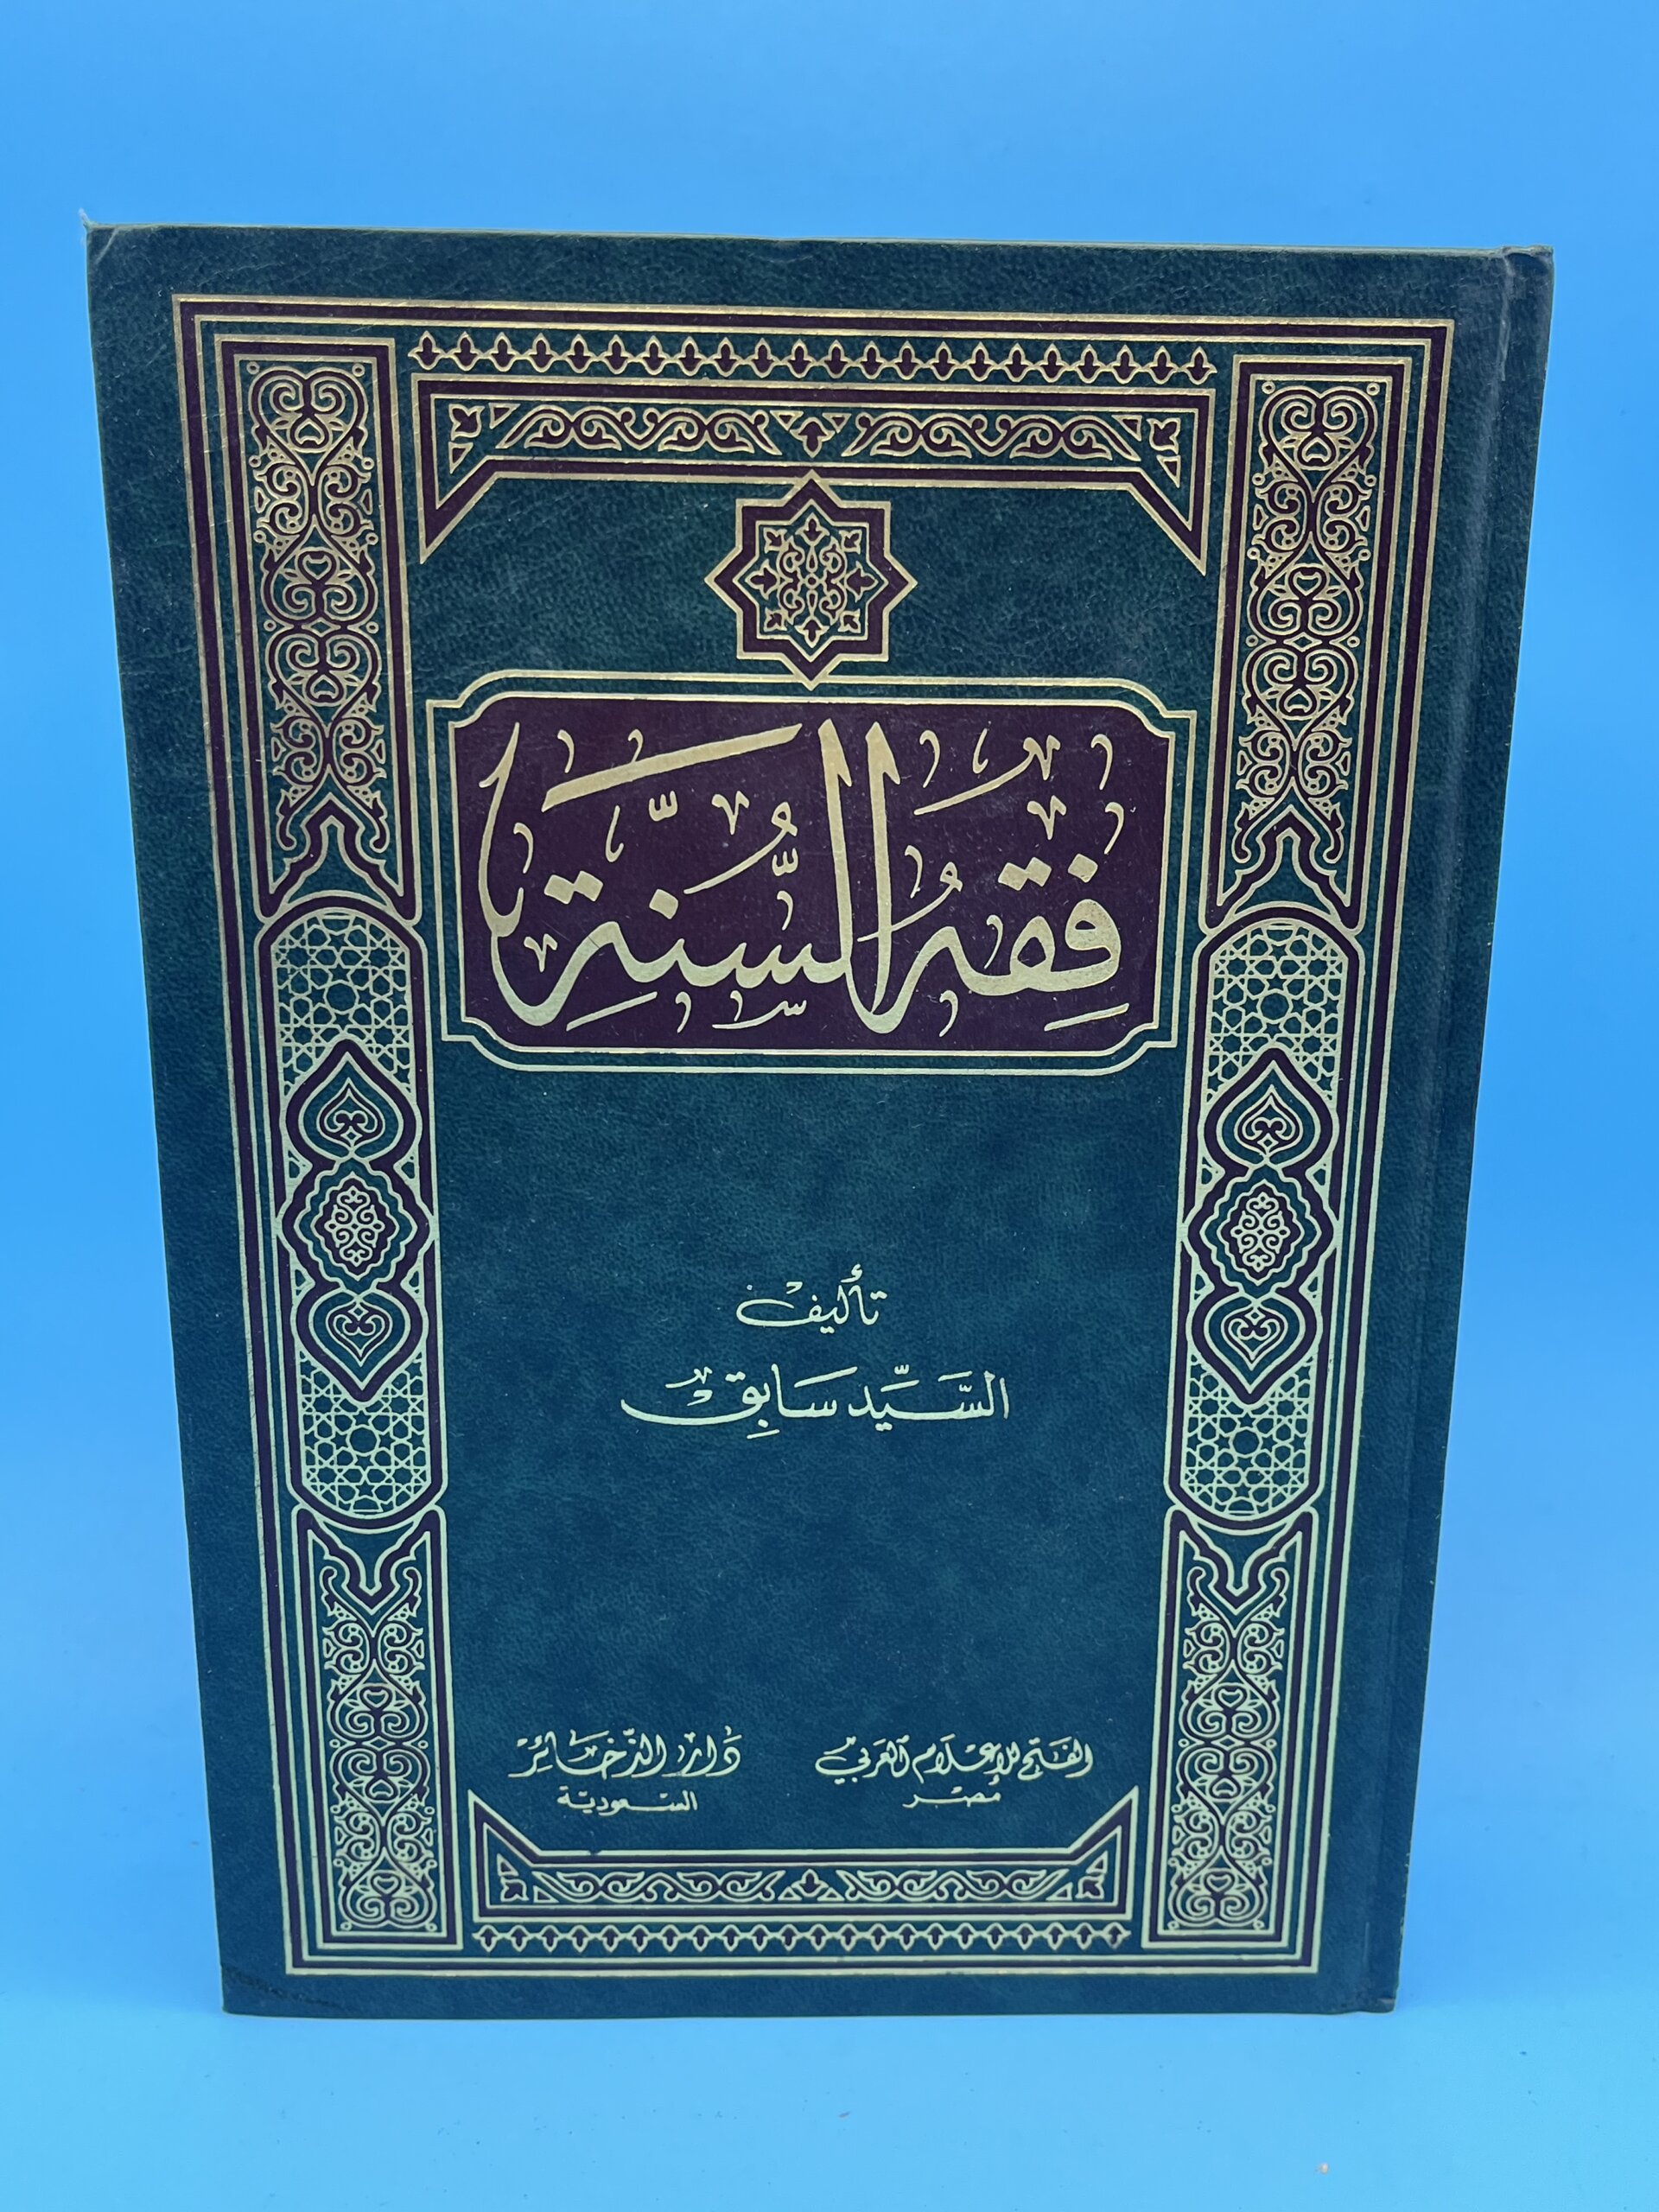 فِقْهُ السُّنَّةِ
تأليف
السَّيِّد سَابِق
الفَتح للإعْلَام العَرَبي
مِصْر
دَار الذَّخَائر
السَّعودية